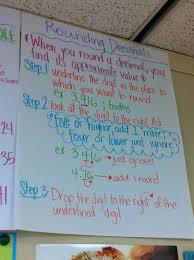 Rounding Decimals
*When you round a decimal, you
find its approximate value
Step 1 underline the digit in the place to
which you want to round
ex 3.416; tenths
Step 2 look at the digit to the right
Five or higher, add 1 more!
Four or lower just ignore
ex 3.416 → just ignore!
4.76 → add 1 more!
Step 3 Drop the digit to the right of the
underlined digit
24
35